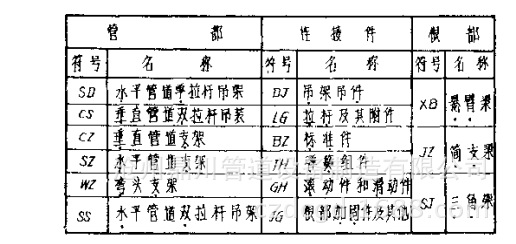 管 部 连接件 根部
符号 名称 符号 名称 符号 名称
SD 水平管道单拉杆吊架 DJ 吊架吊件 XB 悬臂梁
CS 垂直管道双拉杆吊装 LG 拉杆及其附件
CZ 垂直管道支架 BZ 标准件 JZ 简支梁
SZ 水平管道支架 TH 弹簧组件
WZ 弯头支架 GH 滚动件和滑动件 SJ 三角架
SS 水平管道双拉杆吊架 JG 根部加固件及其他